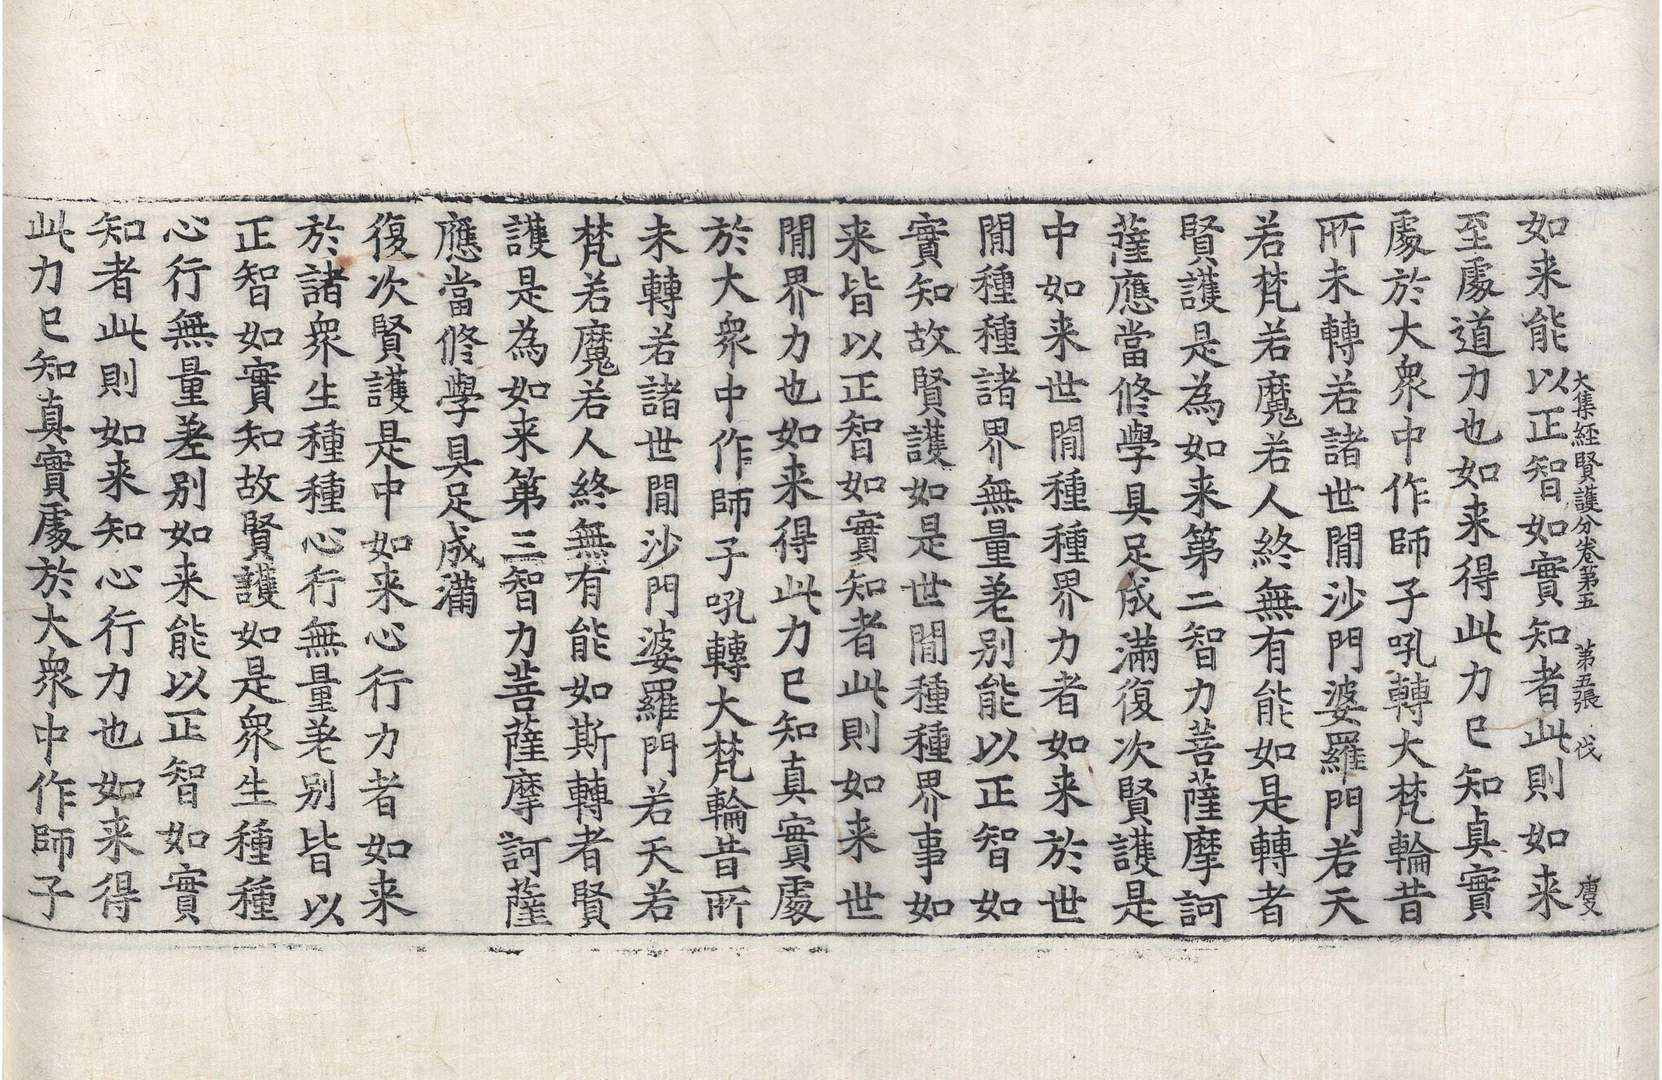 大集経賢護分卷第五 第五張 伐
如来能以正智如實知者此則如来
至處道力也如来得此力已知真實
處於大衆中作師子吼轉大梵輪昔
所未轉若諸世間沙門婆羅門若天
若梵若魔若人終無有能如是轉者
賢護是為如来第二智力菩薩摩訶
薩應當修學具足成滿復次賢護是
中如来世間種種界力者如来於世
間種種諸界無量差别能以正智如
實知故賢護如是世間種種界事如
来皆以正智如實知者此則如来世
間界力也如来得此力已知真實處
於大衆中作師子吼轉大梵輪昔所
未轉若諸世間沙門婆羅門若天若
梵若魔若人終無有能如斯轉者賢
護是為如来第三智力菩薩摩訶薩
應當修學具足成滿
復次賢護是中如来心行力者如来
於諸衆生種種心行無量差别皆以
正智如實知故賢護如是衆生種種
心行無量差别如来能以正智如實
知者此則如来知心行力也如来得
此力已知真實處於大衆中作師子